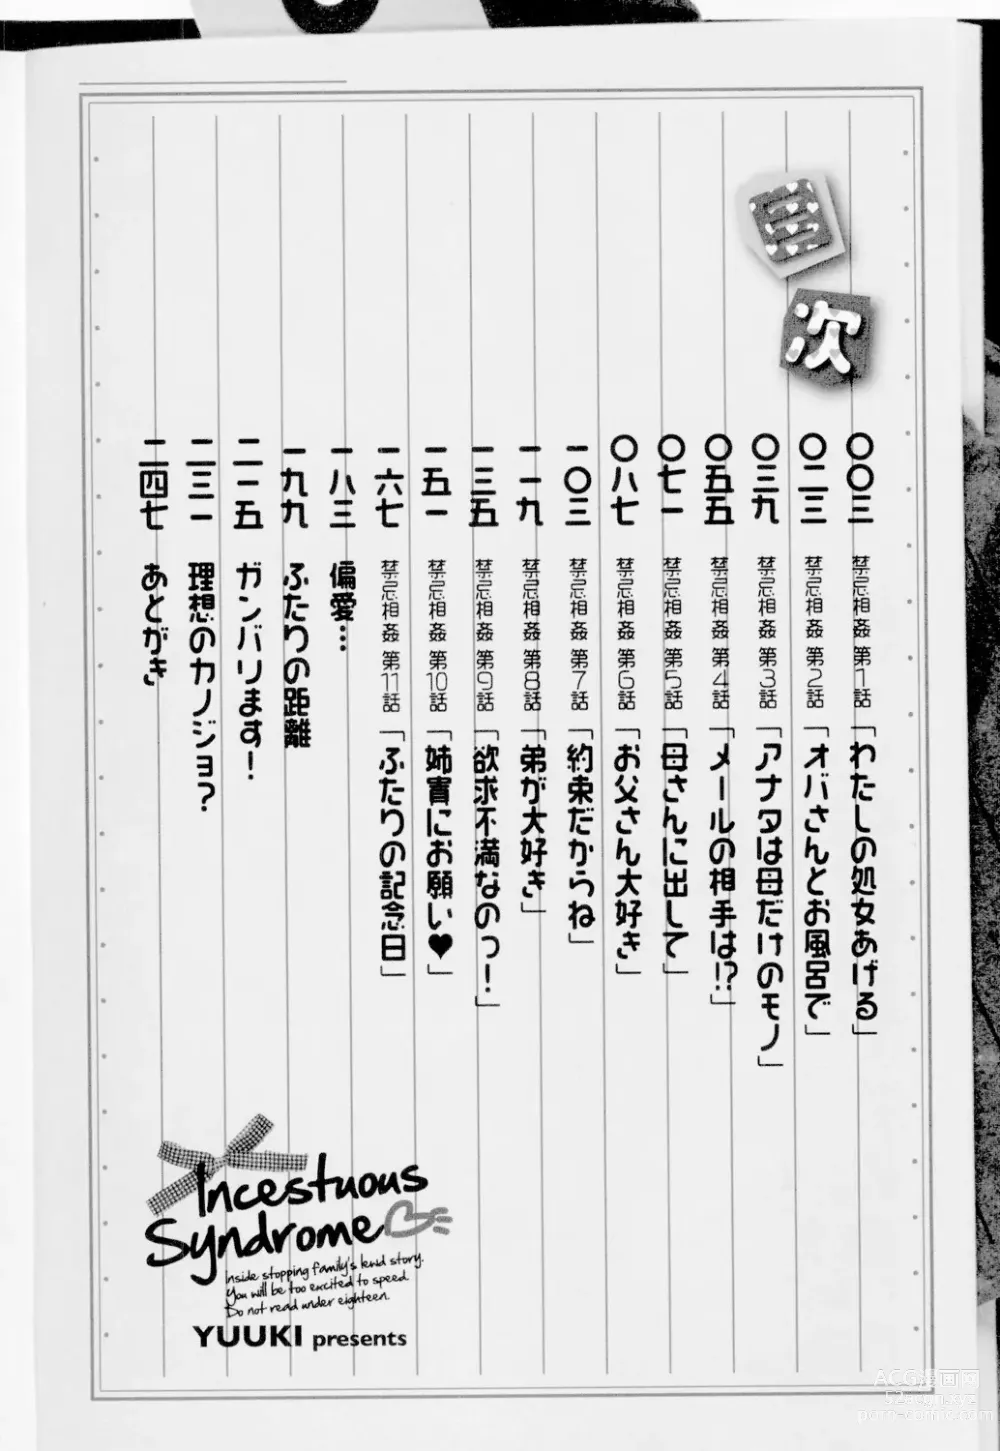 目次
〇〇三 禁忌相姦 第1話 「わたしの処女あげる」
〇二三 禁忌相姦 第2話 「オバさんとお風呂で」
〇三九 禁忌相姦 第3話 「アナタは母だけのモノ」
〇五五 禁忌相姦 第4話 「メールの相手は!?」
〇七一 禁忌相姦 第5話 「母さんに出して」
〇八七 禁忌相姦 第6話 「お父さん大好き」
一〇三 禁忌相姦 第7話 「約束だからね」
一一九 禁忌相姦 第8話 「弟が大好き」
一三五 禁忌相姦 第9話 「欲求不満なのっ！」
一五一 禁忌相姦 第10話 「姉貴にお願い♥」
一六七 禁忌相姦 第11話 「ふたりの記念日」
一八三 偏愛…
一九九 ふたりの距離
二一五 ガンバリます！
二三一 理想のカノジョ？
二四七 あとがき
Incestuous
Syndrome
Inside stopping family's lewd story.
You will be too excited to speed.
Do not read under eighteen.
YUUKI presents
ACG漫画网